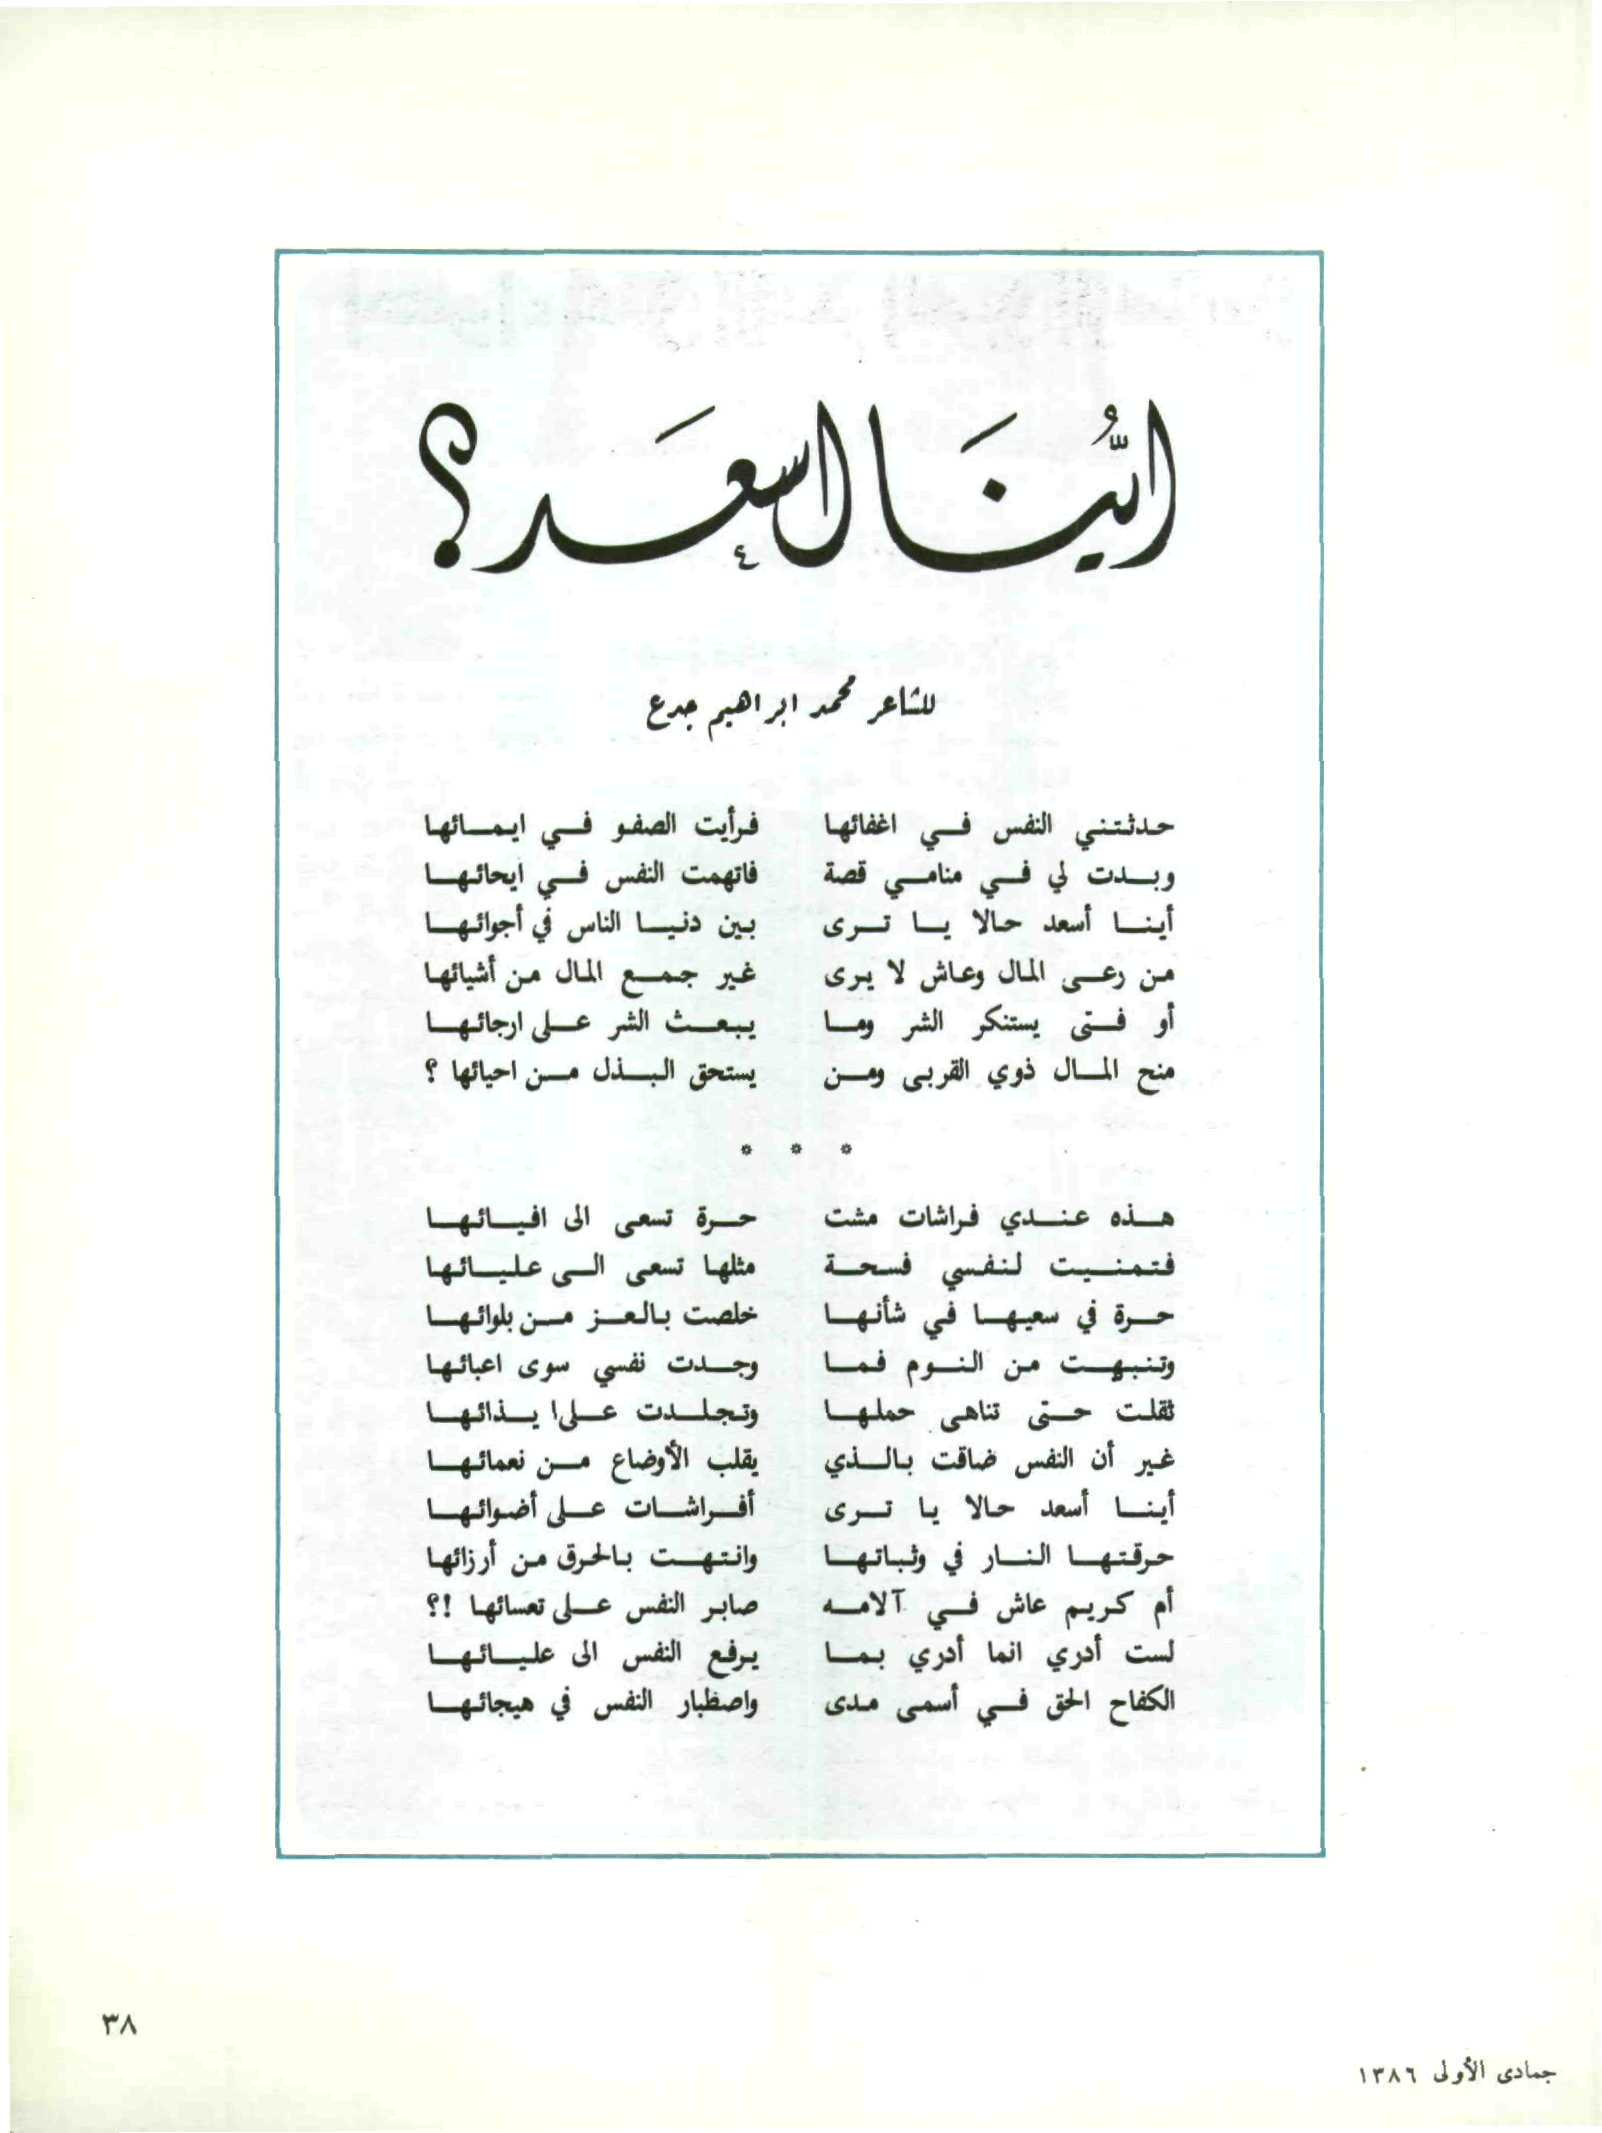 ايُّنَا اسعَد؟
للشاعر محمد ابراهيم جدع
حدثتني النفس في اغفائها فرأيت الصفو في ايمائها
وبدت لي في منامي قصة فاتهمت النفس في ايحائها
أينا أسعد حالا يا ترى بين دنيا الناس في أجوائها
من رعى المال وعاش لا يرى غير جمع المال من أشيائها
أو فتى يستنكر الشر وما يبعث الشر على ارجائها
منح المال ذوي القربى ومن يستحق البذل من احيائها ؟
* * *
هذه عندي فراشات مشت حرة تسعى الى افيائها
فتمنيت لنفسي فسحة مثلها تسعى الى عليائها
حرة في سعيها في شأنها خلصت بالعز من بلوائها
وتنبهت من النوم فما وجدت نفسي سوى اعبائها
ثقلت حتى تناهى حملها وتجلدت على ا يذائها
غير أن النفس ضاقت بالذي يقلب الأوضاع من نعمائها
أينا أسعد حالا يا ترى أفراشات على أضوائها
حرقتها النار في وثباتها وانتهت بالحرق من أرزائها
أم كريم عاش في آلامه صابر النفس على تعسائها !؟
لست أدري انما أدري بما يرفع النفس الى عليائها
الكفاح الحق في أسمى مدى واصطبار النفس في هيجائها
٣٨
جمادى الأولى ١٣٨٦